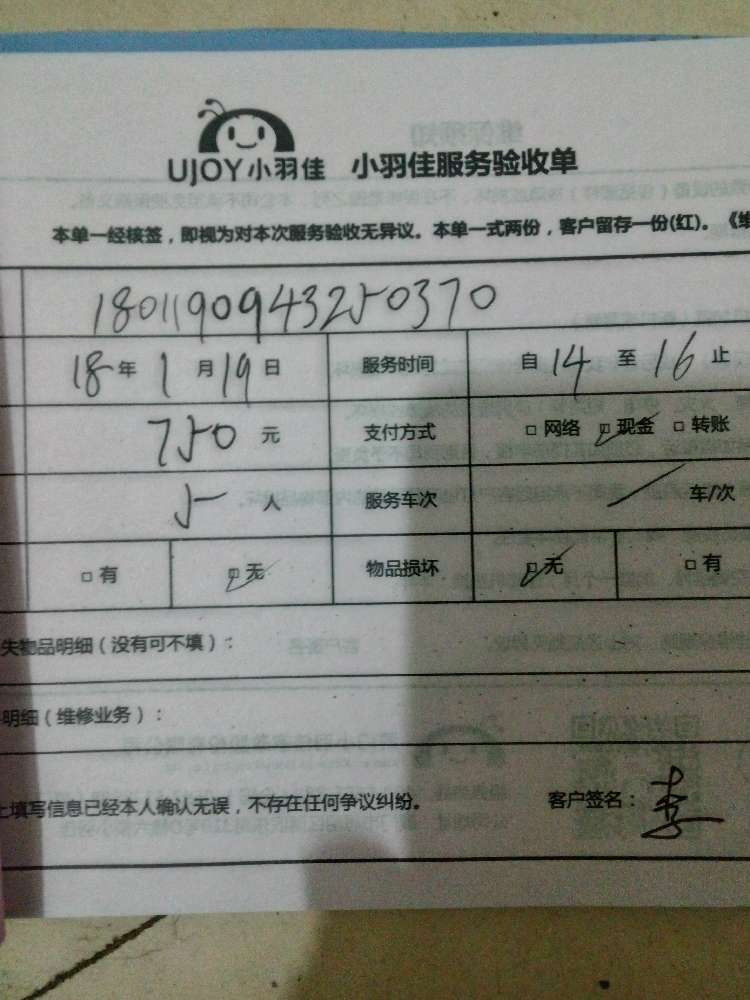 UJOY小羽佳 小羽佳服务验收单
本单一经核签，即视为对本次服务验收无异议。本单一式两份，客户留存一份(红)。《维
18011909432550370
18年1月19日 服务时间 自14至16止
750元 支付方式 □网络 ☑现金 □转账
5人 服务车次 车/次
□有 ☑无 物品损坏 ☑无 □有
失物品明细（没有可不填）：
明细（维修业务）：
上填写信息已经本人确认无误，不存在任何争议纠纷。 客户签名：